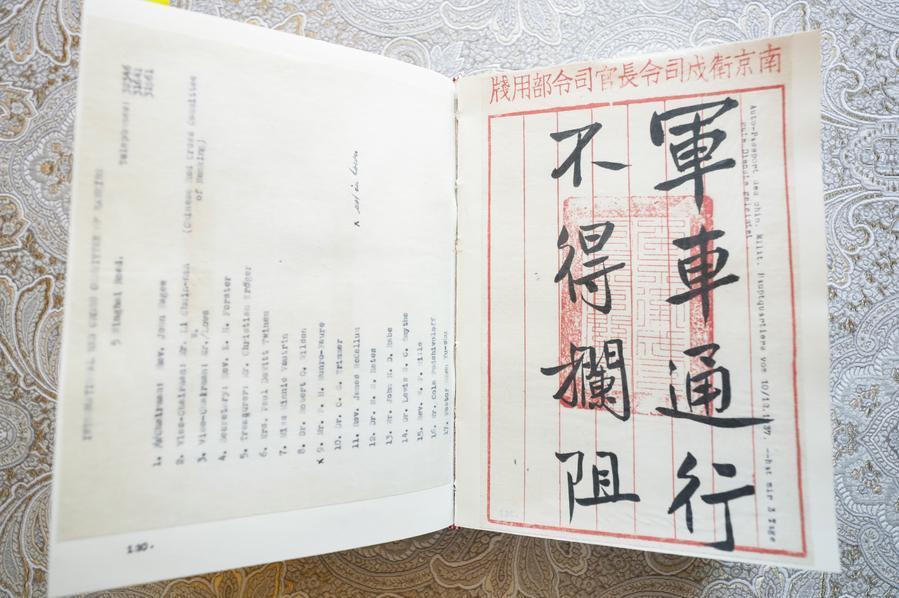 5 Ninghai Road.
Telephones:
1. Chairman: Rev. John Magee
2. Vice-Chairman: Mr. Li Chuin-nan (Chinese Red Cross Committee of Nanking)
3. Vice-Chairman: Mr. Lowe
4. Secretary: Rev. E. H. Forster
5. Treasurer: Mr. Christian Kröger
6. Mrs. Paul Dewitt Twinem
7. Miss Minnie Vautrin
8. Dr. Robert O. Wilson
x 9. Mr. P. H. Munro-Faure
10. Dr. C. S. Trimmer
11. Rev. James McCallum
12. Dr. M. S. Bates
13. Mr. John H. D. Rabe
14. Dr. Lewis S. C. Smythe
15. Rev. W. P. Mills
16. Mr. Cola Podshivoloff
17. Pastor Shen Yu-shu
x not in town
130.
南京衛戍司令長官司令部用牋
Auto-Passport des chin. Milit. Hauptquartiers vom 10/12.1937. --hat mir 3 Tage
gute Dienste geleistet
軍車通行
不得攔阻